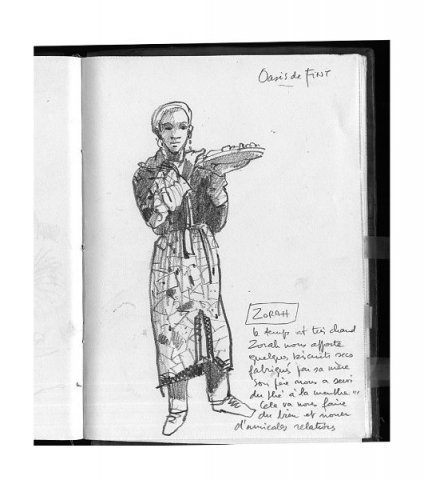 Oasis de FINT
ZORAH
le temps est très chaud
Zorah nous apporte
quelques biscuits secs
fabriqués par sa mère
son père nous a servi
du thé à la menthe
Cela va nous faire
du bien et nouer
d'amicales relations